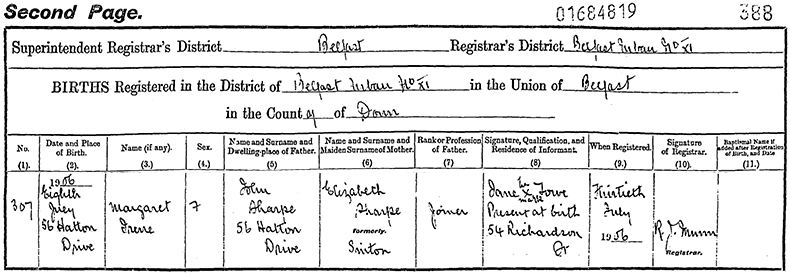 Second Page.
01684819
388
Superintendent Registrar's District Belfast Registrar's District Belfast Urban No XI
BIRTHS Registered in the District of Belfast Urban No XI in the Union of Belfast
in the County of Down
No. (1).
Date and Place of Birth. (2).
Name (if any). (3.)
Sex. (4.)
Name and Surname and Dwelling-place of Father. (5)
Name and Surname and Maiden Surname of Mother. (6)
Rank or Profession of Father. (7)
Signature, Qualification, and Residence of Informant. (8)
When Registered. (9.)
Signature of Registrar. (10).
Baptismal Name if added after Registration of Birth, and Date (11.)
307
1906
Eighth
July
56 Hatton
Drive
Margaret
Irene
F
John
Sharpe
56 Hatton
Drive
Elizabeth
Sharpe
formerly.
Sinton
Joiner
Jane her X mark Lowe
Present at birth
54 Richardson
St
Thirtieth
July
1906
R. J. Munn
Registrar.